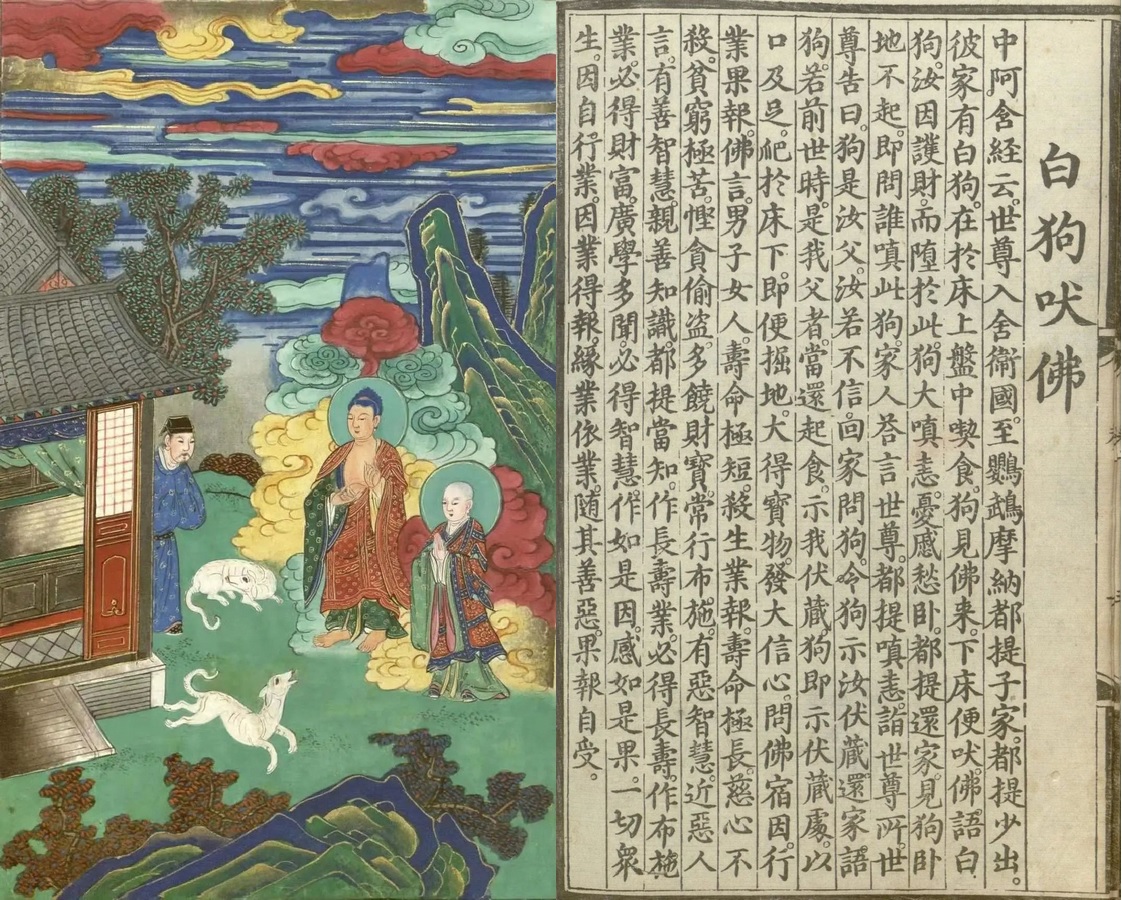 白狗吠佛
中阿含経云。世尊入舍衞國。至鸚鵡摩納都提子家。都提少出。
彼家有白狗。在於床上盤中喫食。狗見佛来。下床便吠。佛語白
狗。汝因護財。而墮於此。狗大嗔恚。憂慼愁卧。都提還家。見狗卧
地不起。即問誰嗔此狗。家人荅言世尊。都提嗔恚。詣世尊所。世
尊告曰。狗是汝父。汝若不信。回家問狗。今狗示汝伏藏。還家語
狗。若前世時。是我父者。當還起食。示我伏藏。狗即示伏藏處。以
口及足。爬於床下。即便掘地。大得寶物。發大信心。問佛宿因。行
業果報。佛言。男子女人。壽命極短。殺生業報。壽命極長。慈心不
殺。貧窮極苦。慳貪偷盗。多饒財寶。常行布施。有惡智慧。近惡人
言。有善智慧。親善知識。都提當知。作長壽業。必得長壽。作布施
業。必得財富。廣學多聞。必得智慧。作如是因。感如是果。一切衆
生。因自行業。因業得報。緣業依業。隨其善惡。果報自受。